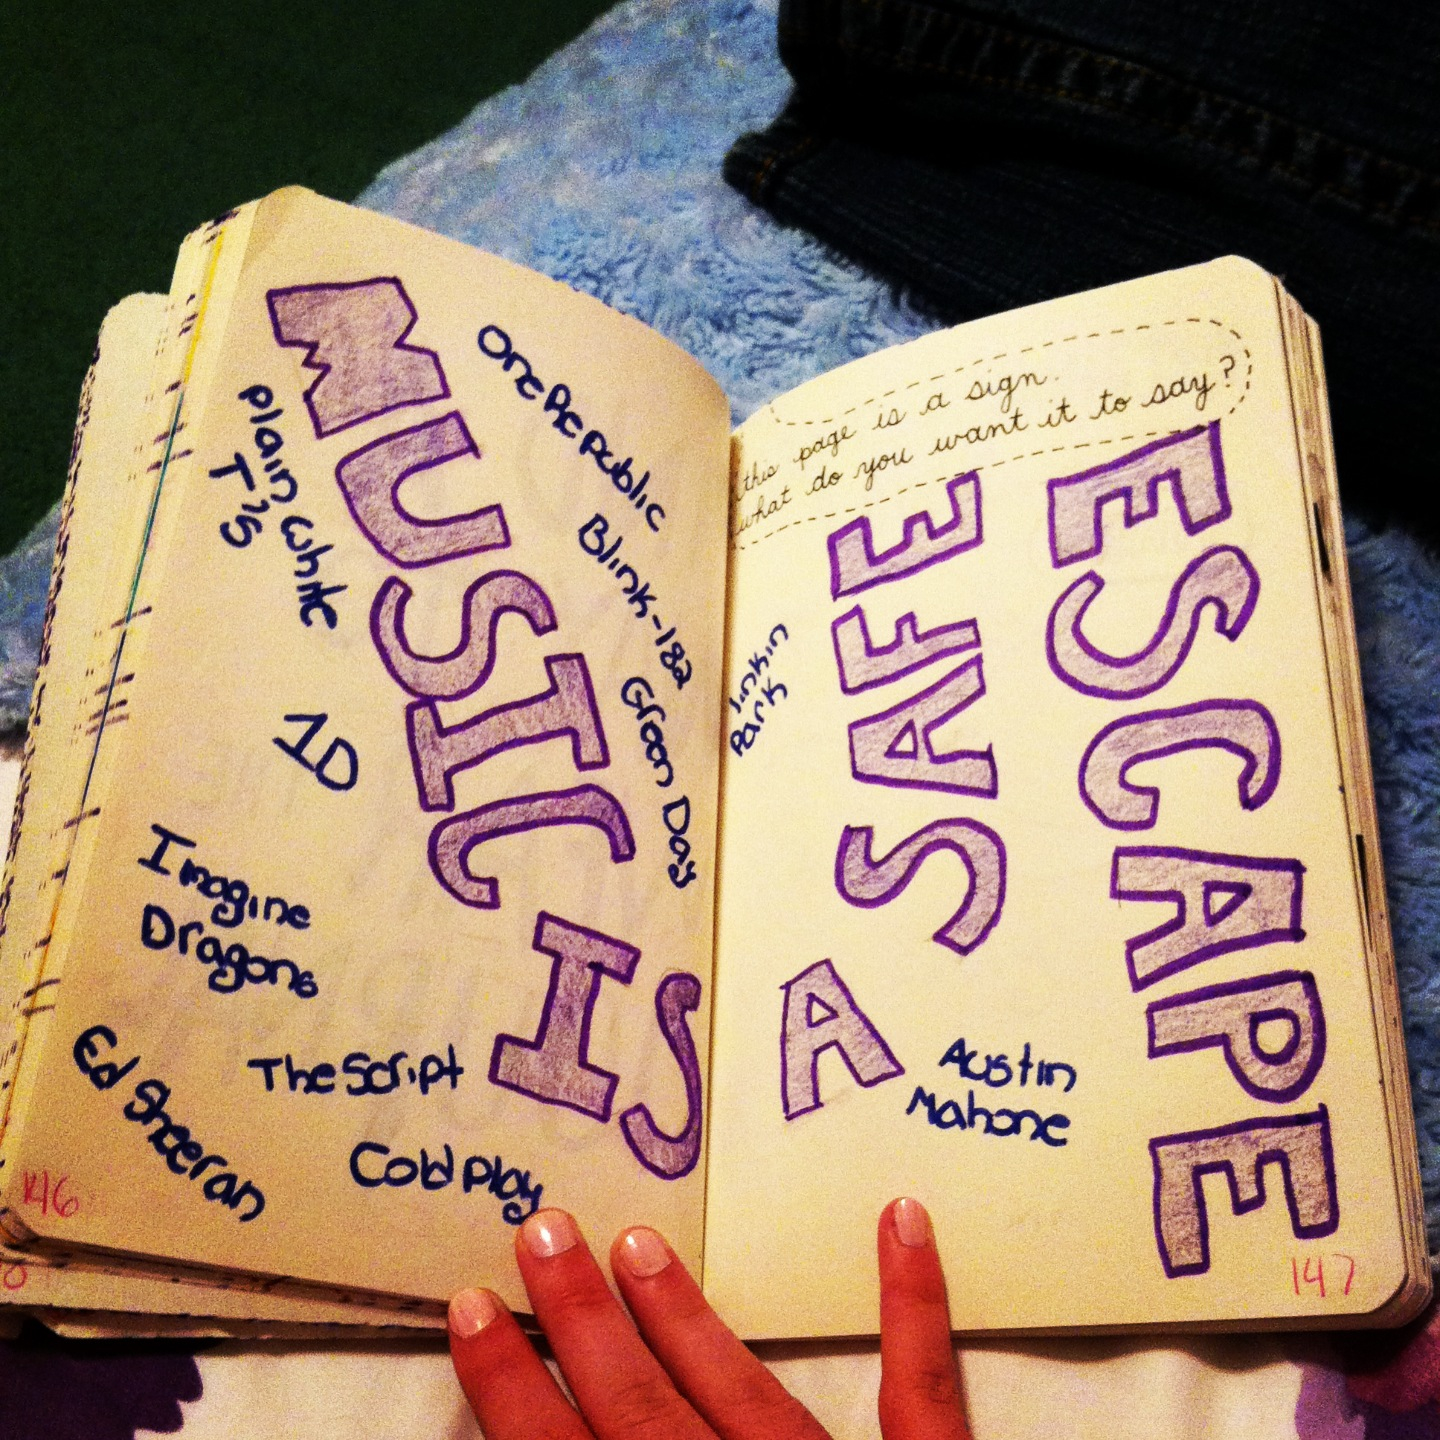 MUSIC IS
OneRepublic
Plain White
T's
Blink-182
Green Day
1D
Imagine
Dragons
The Script
Ed Sheeran
Coldplay
146
this page is a sign.
what do you want it to say?
A SAFE
ESCAPE
linkin
Park
Austin
Mahone
147